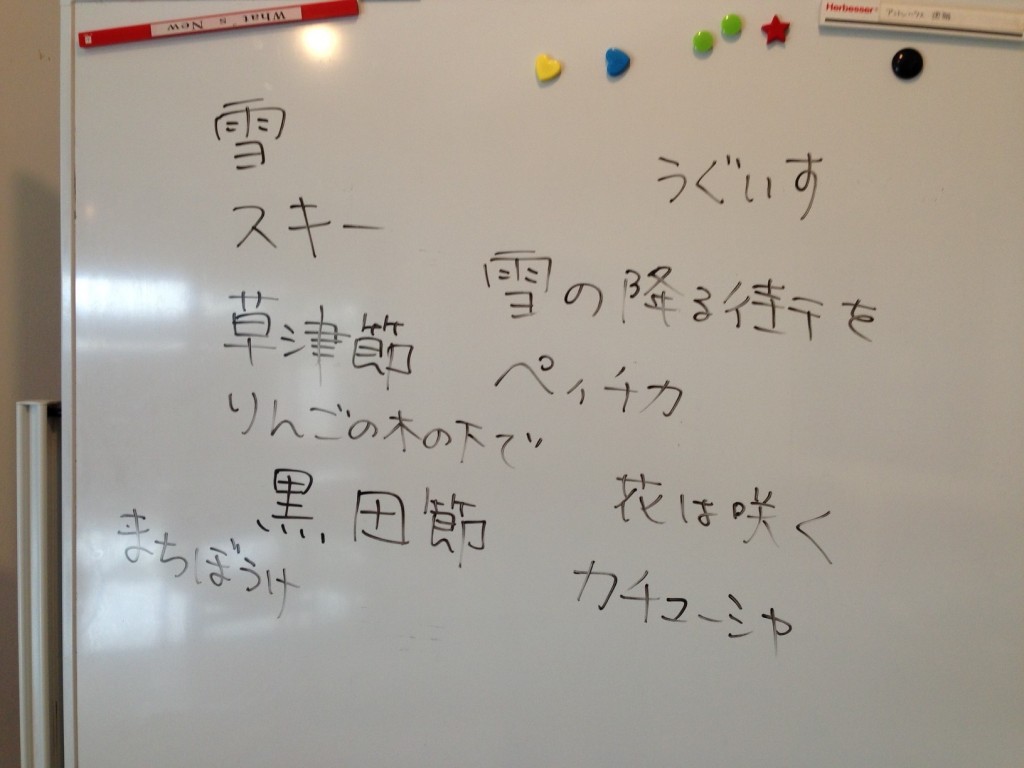 What's New
Herbesser
雪
スキー
草津節
りんごの木の下で
黒田節
まちぼうけ
うぐいす
雪の降る待チを
ペィチカ
花は咲く
カチューシャ